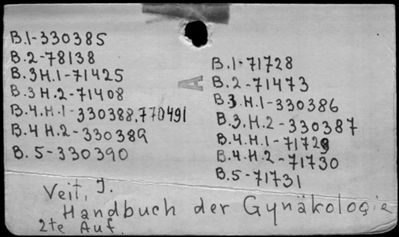 B.1-330385
B.2-78138
B.3H.1-71425
B.3H.2-71408
B.4.H.1-330388,770491
B.4H.2-330389
B.5-330390
A
B.1-71728
B.2-71473
B3.H.1-330386
B.3.H.2-330387
B.4.H.1-71729
B.4.H.2-71730
B.5-71731
Veit, J.
Handbuch der Gynäkologie
2te Auf.